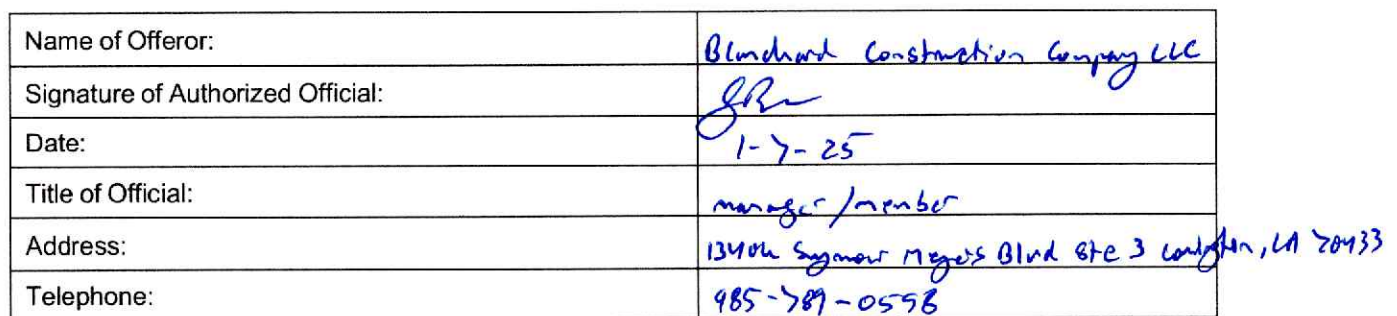 Name of Offeror: Blanchard Construction Company LLC
Signature of Authorized Official:
Date: 1-7-25
Title of Official: manager/member
Address: Seymour Meyers Blvd Ste 3 Covington, LA 70433
Telephone: 985-789-0558